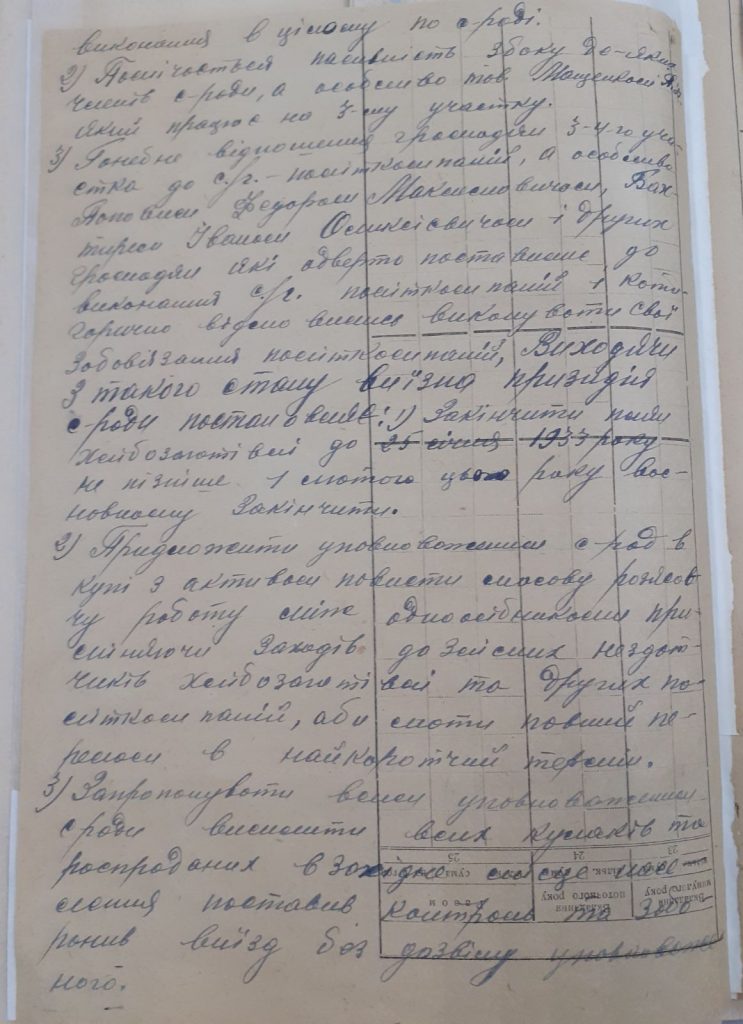 виконання в цілому по с-раді.
2) Помічається пасивність збоку де-яких
членів с-ради, а особливо тов Мащенкой
який працює на 3-му участку.
3) Ганебне відношення громадян 3-4-го уча-
стка до с./г. - політкомпаній, а особливо
Поповим Федором Максимовичом, Вах-
Іваном Оликсієвичом і других
громадян які одверто поставили до
виконання с./г. політкомпаній і кати-
горично відмовились виконувати свої
зобовязання політкомпаній, Виходячи
з такого стану виїзна призидія
с-ради постановляє: 1) Закінчити план
хлібозаготівлі до 25 січня 1933 року
не пізніше 1 лютого цього року вос-
новному закінчити.
2) Придложити уповноваженим с-рад в
купі з активом повисти масову розясов-
чу роботу між одноосібниками при-
міняючи заходів до злісних нездат-
чиків хлібозаготівлі та других по-
літкомпаній, аби мати повний пе-
релом в найкоротчий термін.
3) Запропонувати всим уповноваженим
с-ради висилити всих куликів та
роспроданих в західне місце насе-
лення поставив контроль та забо-
ронив виїзд без дозвілу уповноваже-
ного.
23
24
25
Вкладення
минулого року
Вкладення
поточного року